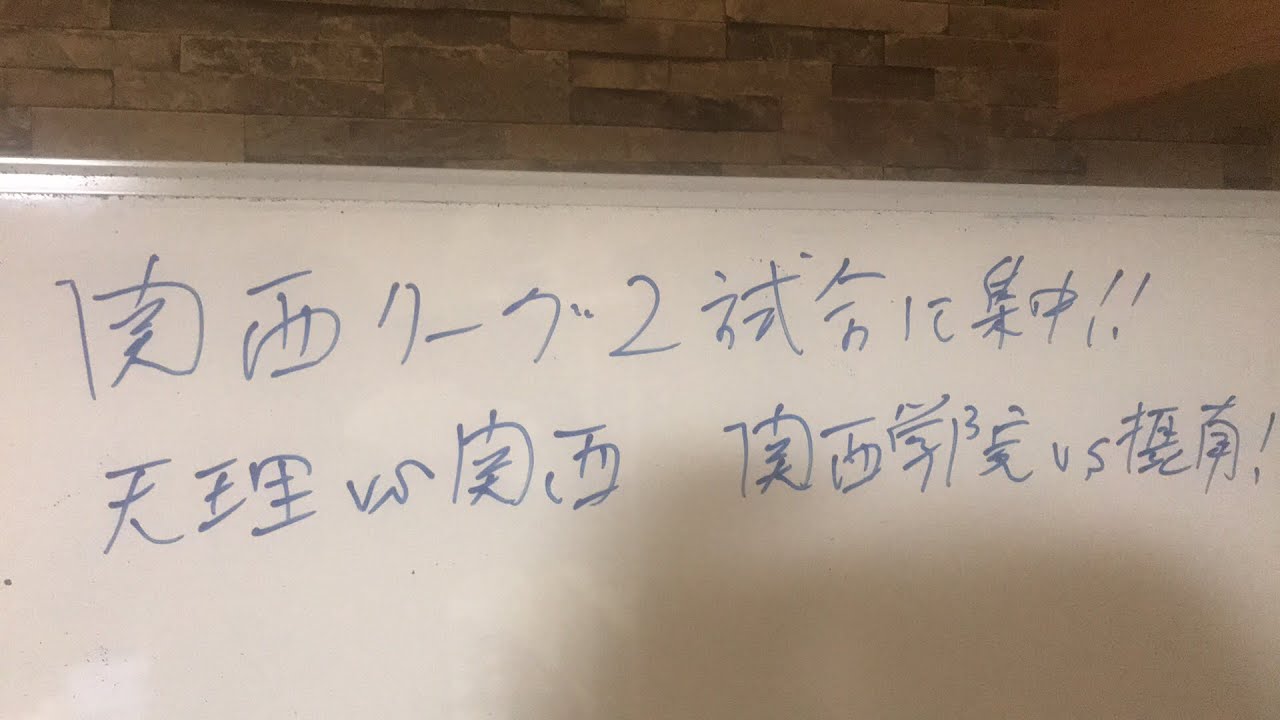 関西リーグ2試合に集中!!
天理vs関西 関西学院vs摂南!